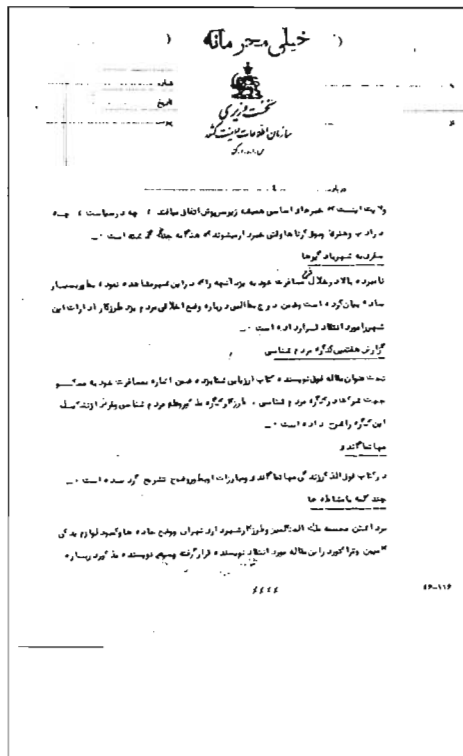 خیلی محرمانه
نخست وزیری
سازمان اطلاعات و امنیت کشور
شماره
تاریخ
پیوست
درباره
ولایت اینست که خبرهای اساسی همیشه زیر سرپوش اتفاق میافتد ، چه در سیاست ، چه
در ادب و هنر، وقتی خبردار میشوند که هنگامه جنگ گم شده است .
سفری به شهر بادگیرها
نامبرده بالا در خلال مسافرت خود به یزد آنچه را که در این شهر مشاهده نموده بطور بسیار
ساده بیان کرده است و ضمن درج مطالبی درباره وضع اخلاقی مردم یزد طرز کار ادارات این
شهر را مورد انتقاد قرار داده است .
گزارش هفتمین کنگره مردم شناسی
تحت عنوان مقاله فوق نویسنده کتاب ارزیابی شتابزده ضمن اشاره بمسافرت خود به مسکو
جهت شرکت در کنگره مردم شناسی ، طرز کار کنگره مذکور و علم مردم شناسی و غرض از تشکیل
این کنگره را شرح داده است .
مهاتما گاندی
در کتاب فوق الذکر زندگی مهاتما گاندی و مبارزات او بطور وضوح تشریح گردیده است .
چند کلمه با مشاطه ها
برداشتن مجسمه ملک المتکلمین و طرز کار شهرداری تهران و وضع جاده ها و کمبود لوازم یدکی
کمباین و تراکتور در این مقاله مورد انتقاد نویسنده قرار گرفته و نویسنده مذکور درباره
۴۶-۱۱۶